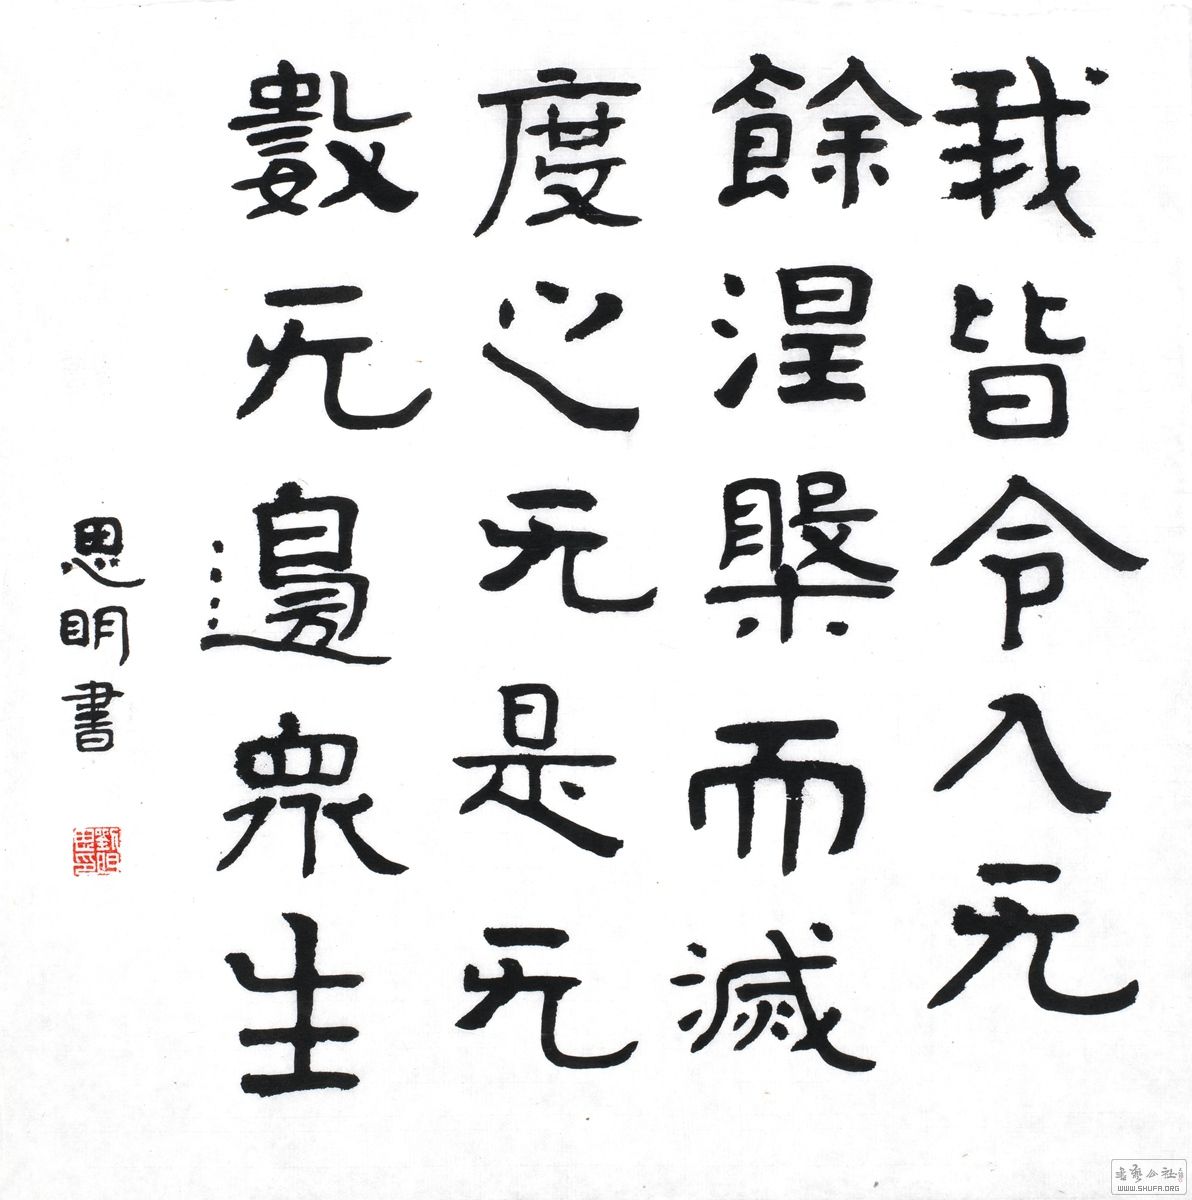 我皆令入无
餘涅槃而滅
度之无是无
數无邊衆生
思明書
劉思明印
书艺公社
WWW.SHUFA.ORG